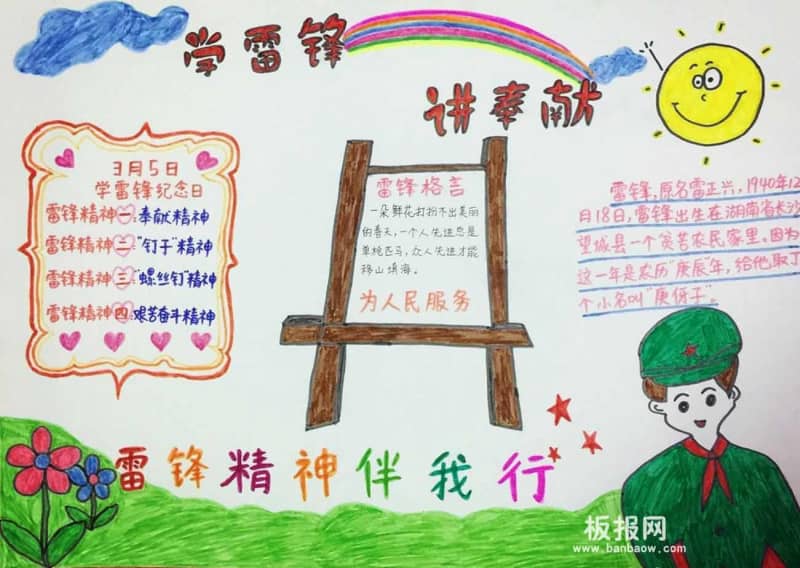 学雷锋
讲奉献
3月5日
学雷锋纪念日
雷锋精神一:奉献精神
雷锋精神二:“钉子”精神
雷锋精神三:“螺丝钉”精神
雷锋精神四:艰苦奋斗精神
雷锋格言
一朵鲜花打扮不出美丽
的春天,一个人先进总是
单枪匹马,众人先进才能
移山填海。
为人民服务
雷锋,原名雷正兴,1940年12
月18日,雷锋出生在湖南省长沙
望城县一个贫苦农民家里。因为
这一年是农历“庚辰”年,给他取了
个小名叫“庚伢子”。
雷锋精神伴我行
板报网
www.banbaow.com